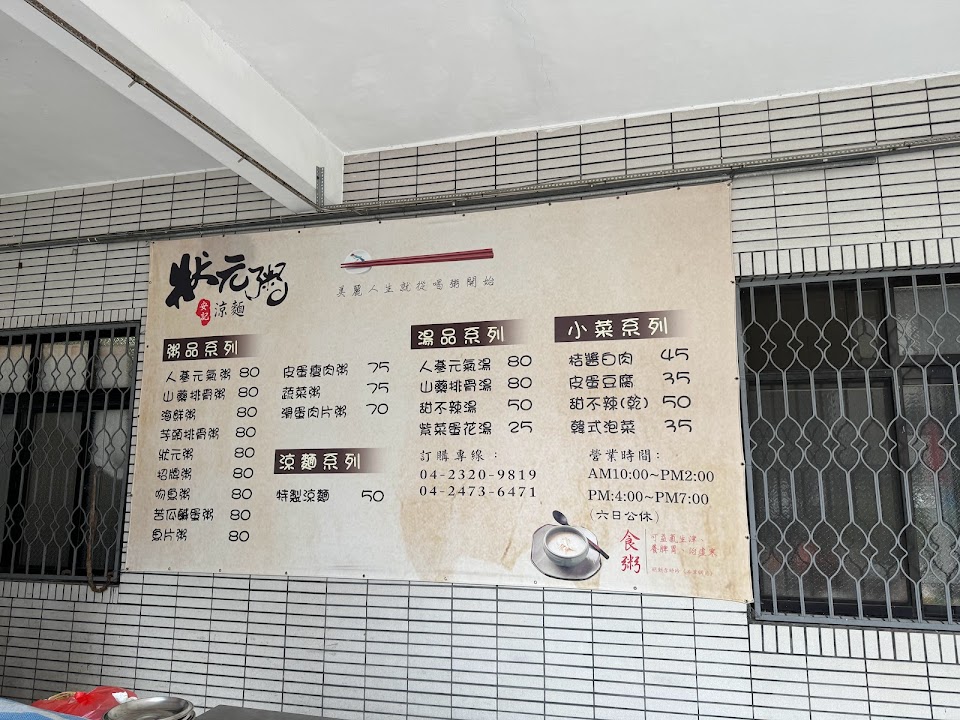 狀元粥
安記
涼麵
美麗人生就從喝粥開始
粥品系列
人蔘元氣粥 80
山藥排骨粥 80
海鮮粥 80
芋頭排骨粥 80
狀元粥 80
招牌粥 80
吻魚粥 80
苦瓜鹹蛋粥 80
魚片粥 80
皮蛋瘦肉粥 75
蔬菜粥 75
滑蛋肉片粥 70
涼麵系列
特製涼麵 50
湯品系列
人蔘元氣湯 80
山藥排骨湯 80
甜不辣湯 50
紫菜蛋花湯 25
訂購專線：
04-2320-9819
04-2473-6471
小菜系列
桔醬白肉 45
皮蛋豆腐 35
甜不辣(乾) 50
韓式泡菜 35
營業時間：
AM10:00~PM2:00
PM:4:00~PM7:00
(六日公休)
食粥
可益氣生津、
養脾胃、治虛寒